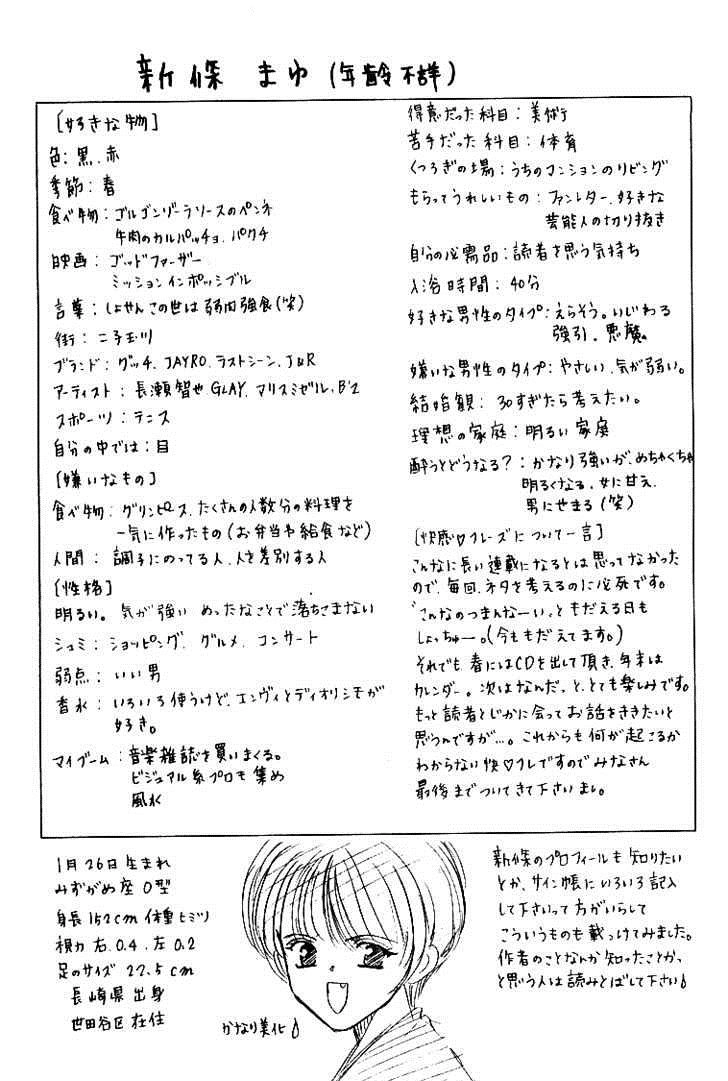 新條 まゆ (年齢不詳)
[好きな物]
色:黒、赤
季節:春
食べ物:ゴルゴンゾーラソースのペンネ
牛肉のカルパッチョ、パクチ
映画:ゴッドファーザー
ミッションインポッシブル
言葉:しょせんこの世は弱肉強食(笑)
街:二子玉川
ブランド:グッチ、JAYRO、ラストシーン、J&R
アーティスト:長瀬智也、GLAY、マリスミゼル、B'z
スポーツ:テニス
自分の中では:目
[嫌いなもの]
食べ物:グリンピース、たくさんの人数分の料理を
一気に作ったもの(お弁当や給食など)
人間:調子にのってる人、人を差別する人
[性格]
明るい。気が強い めったなことで落ちこまない
シュミ:ショッピング、グルメ、コンサート
弱点:いい男
香水:いろいろ使うけど、エンヴィとディオリシモが
好き。
マイブーム:音楽雑誌を買いまくる。
ビジュアル系プロモ集め
風水
得意だった科目:美術
苦手だった科目:体育
くつろぎの場:うちのマンションのリビング
もらってうれしいもの:ファンレター、好きな
芸能人の切り抜き
自分の必需品:読者を思う気持ち
入浴時間:40分
好きな男性のタイプ:えらそう。いじわる
強引。悪魔。
嫌いな男性のタイプ:やさしい、気が弱い。
結婚観:30すぎたら考えたい。
理想の家庭:明るい家庭
酔うとどうなる?:かなり強いが、めちゃくちゃ
明るくなる、女に甘え、
男にせまる(笑)
[快感♡フレーズについて一言]
こんなに長い連載になるとは思ってなかった
ので、毎回、ネタを考えるのに必死です。
「こんなのつまんなーい。」ともだえる日も
しょっちゅー。(今ももだえてます。)
それでも春にはCDを出して頂き、年末は
カレンダー。次はなんだっ、と、とても楽しみです。
もっと読者とじかに会ってお話をききたいと
思うんですが…。これからも何が起こるか
わからない快♡フレですのでみなさん
最後までついてきて下さいまし。
1月26日生まれ
みずがめ座 O型
身長152cm 体重ヒミツ
視力 右、0.4、左0.2
足のサイズ 22.5cm
長崎県出身
世田谷区在住
かなり美化♪
新條のプロフィールも知りたい
とか、サイン帳にいろいろ記入
して下さいって方がいらして
こういうものも載っけてみました。
作者のことなんか知ったことかっ
と思う人は読みとばして下さい♪